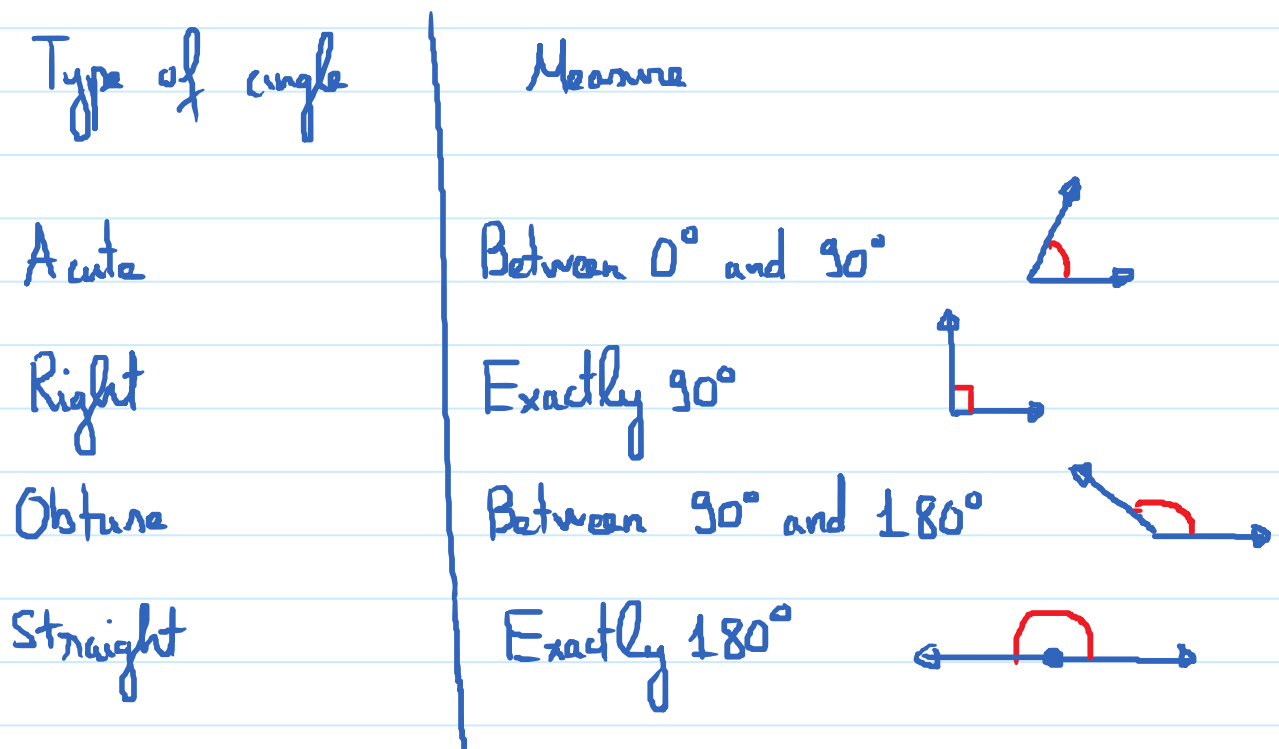 Type of angle Measure
Acute Between 0° and 90°
Right Exactly 90°
Obtuse Between 90° and 180°
Straight Exactly 180°